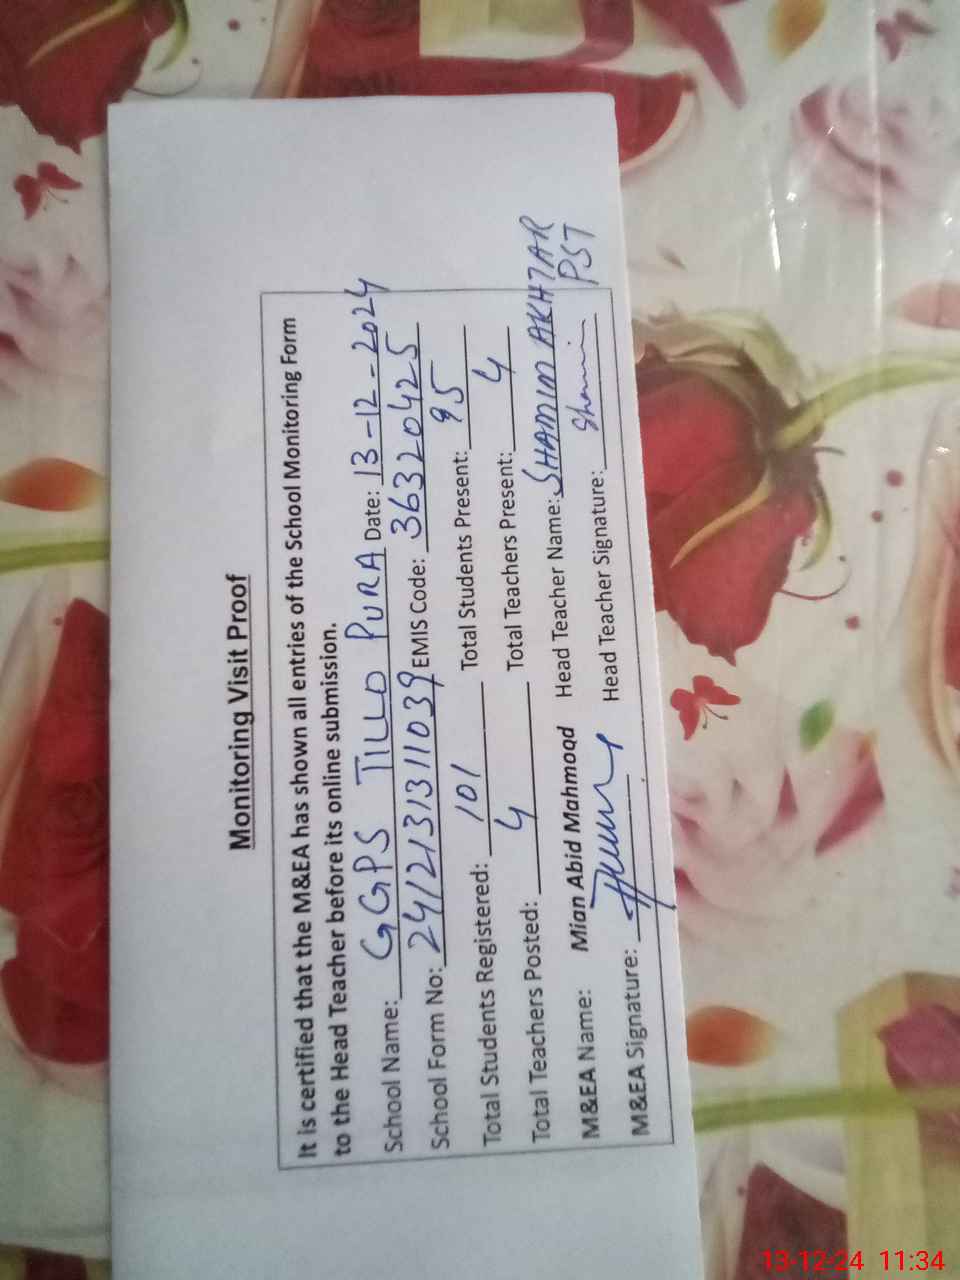 Monitoring Visit Proof
It is certified that the M&EA has shown all entries of the School Monitoring Form
to the Head Teacher before its online submission.
School Name: GGPS TILLO PURA Date: 13-12-2024
School Form No: 2412131311039 EMIS Code: 36320425
Total Students Registered: 101 Total Students Present: 95
Total Teachers Posted: 4 Total Teachers Present: 4
M&EA Name: Mian Abid Mahmood Head Teacher Name: SHAMIM AKHTAR
PST
M&EA Signature: Head Teacher Signature: Shamim
13-12-24 11:34